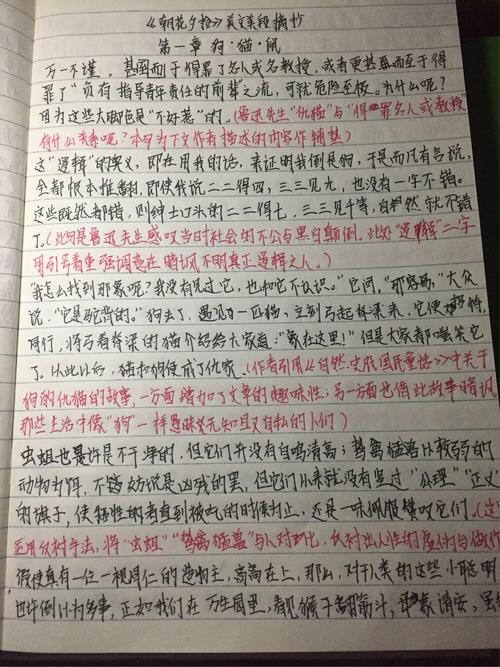 《朝花夕拾》美文美段摘抄
第一章 狗·猫·鼠
万一不谨，甚而至于得罪了名人或名教授，或者更甚而至于得
罪了“负有指导青年责任的前辈”之流，可就危险已极。为什么呢？
因为这些大脚色是“不好惹”的。（鲁迅先生“仇猫”与“得罪名人或教授”
有什么关系呢？本句为下文作者描述的内容作铺垫）
这“逻辑”的奥义，即在用我的话，来证明我倒是狗，于是而凡有言说，
全都根本推翻，即使我说二二得四，三三见九，也没有一字不错。
这些既然都错，则绅士口头的二二得七，三三见千等，自然就不错
了。（此句是鲁迅先生感叹当时社会的不公与黑白颠倒，此处“逻辑”二字
用引号着重强调意在暗讽不明真正逻辑之人。）
“我怎么找到那象呢？我没有见过它，也和它不认识。”它问，“那容易，”大众
说，“它是驼背的。”狗去了，遇见一匹猫，立刻弓起脊梁来，它便招待，
同行，将弓着脊梁的猫介绍给大家道：“象在这里！”但是大家都嗤笑它
了。从此以后，猫和狗便成了仇家。（作者引用《自然史底国民童话》中关于
狗的仇猫的故事，一方面增加了文章的趣味性；另一方面也借此故事暗讽
那些生活中像“狗”一样愚昧无知且又自私的人们）
虫蛆也许是不干净的，但它们并没有自鸣清高；鸷禽猛兽以较弱的
动物为饵，不妨说是凶残的罢，但它们从来就没有竖过“公理”“正义”
的旗子，使牺牲的者直到被吃的时候为止，还是一味佩服赞叹它们。（这
运用反衬手法，将“虫蛆”“鸷禽猛兽”与人对比，反衬出人性的虚伪与做作
假使真有一位一视同仁的造物主，高高在上，那么，对于人类的这些小聪明
也许倒以为多事，正如我们在万生园里，看见猴子翻筋斗，母象请安，虽然